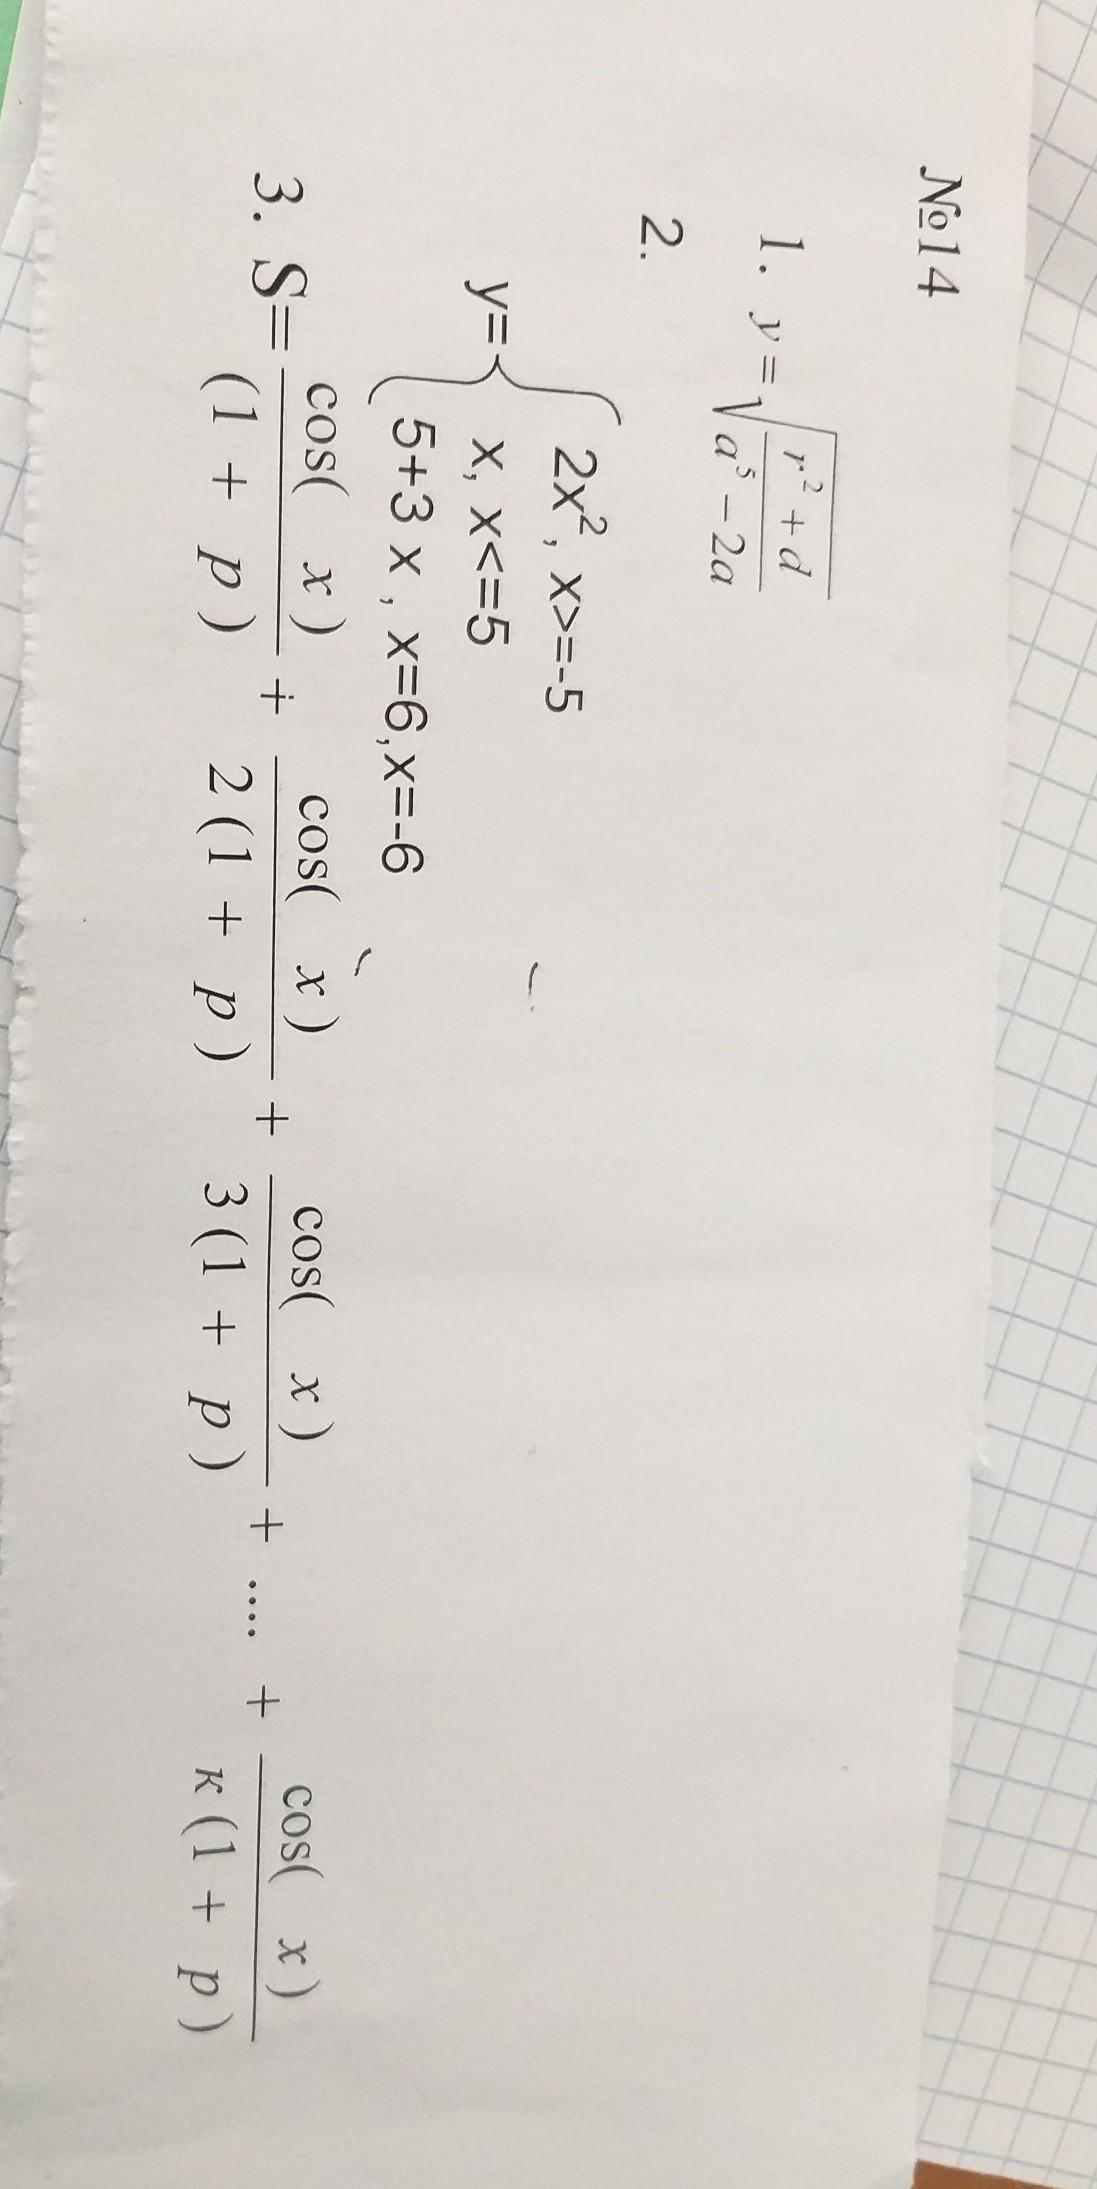 №14
1. y = √((r² + d)/(a⁵ − 2a))
2.
2x², x>=-5
y={ x, x<=5
5+3 x , x=6,x=-6
3. S= cos( x )/(1 + p) + cos( x )/2(1 + p) + cos( x )/3(1 + p) + .... + cos( x )/к(1 + p)